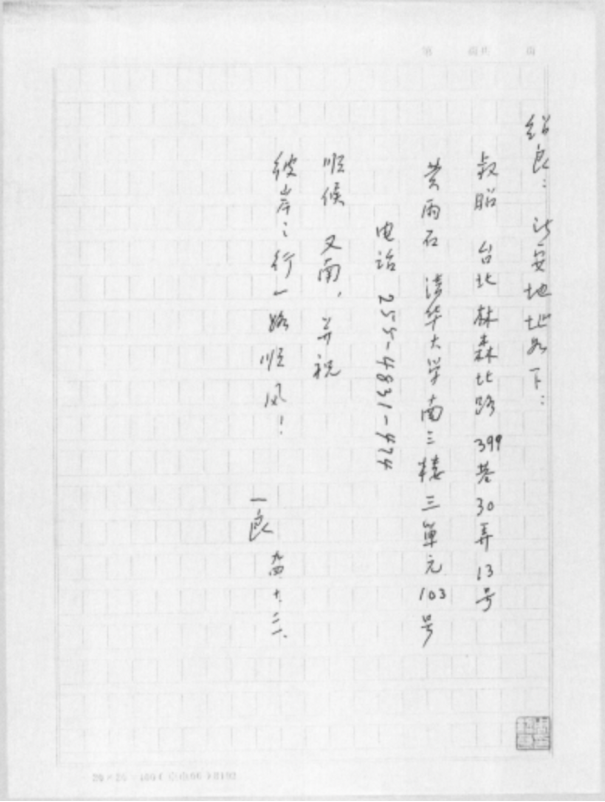 绍良：计安地址如下：
叔昭 台北林森北路399巷30弄13号
黄雨石 清华大学南三楼三单元103号
电话 255-4831-474
顺候 又南，并祝
彼岸之行一路顺风！
一良
九四、十、二、